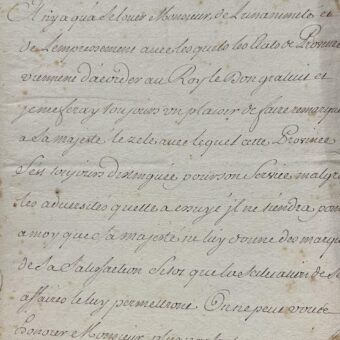 Il n'y a qu'a se louer Monsieur, de L'unanimité et
de L'empressement avec lesquels les Etats de Provence
viennent d'acorder au Roy le Don gratuit et
je me feray toujours un plaisir de faire remarquer
a Sa majesté le zele avec lequel cette Province
s'est toujours distinguée pour son Service malgré
les adversités quelle a essuyé il ne tiendra pas
a moy que Sa majesté ne luy donne des marques
de Sa Satisfaction Sitot que la Situation de Ses
affaires le luy permettront On ne peut vous
honorer Monsieur plus